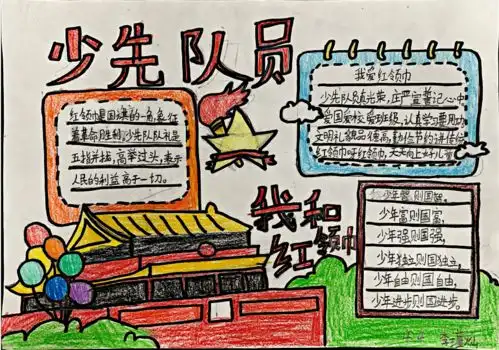 少先队员
红领巾是国旗的一角,象征
着革命胜利,少先队队礼是
五指并拢,高举过头,表示
人民的利益高于一切。
我爱红领巾
少先队员真光荣,庄严宣誓记心中
爱国爱校爱班级,认真学习要用功
文明礼貌品德高,勤俭节约讲信用
红领巾呀红领巾,天天向上好儿童
我和
红领巾
少年智则国智,
少年富则国富,
少年强则国强,
少年独立则国独立,
少年自由则国自由,
少年进步则国进步。